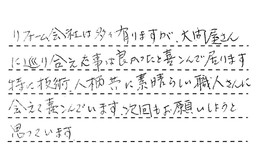 リフォーム会社は多々有りますが、大問屋さん
に巡り会えた事は良かったと喜んで居ります
特に技術、人柄共に素晴らしい職人さんに
会えて喜んでいます、次回もお願いしようと
思っています